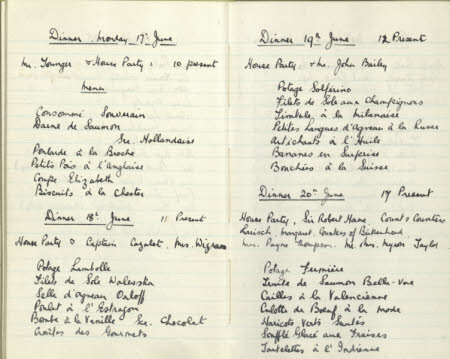 Dinner Monday 17th June
Mr. Younger & House Party: 10 present
Menu
Consommé Souverain
Darne de Saumon
Sce. Hollandaise
Poularde à la Broche
Petits Pois à l'Anglaise
Coupe Elizabeth
Biscuits à la Chester
Dinner 18th June 11 Present
House Party & Captain Cazalet, Mrs. Wigram
Potage Lamballe
Filets de Sole Walewska
Selle d'Agneau Orloff
Poulet à l'Estragon
Bombe à la Vanille Sce. Chocolat
Croûtes des Gourmets
Dinner 19th June 12 Present
House Party: & Mr. John Bailey
Potage Solférino
Filets de Sole aux Champignons
Timbale à la Milanaise
Petites Langues d'Agneau à la Russe
Artichauts à l'Huile
Bananes en Surprise
Bouchées à la Suisse
Dinner 20th June 17 Present
House Party, Sir Robert Hume, Count & Countess
Margaret, Countess of Birkenhead
Mrs. Payne Thompson. Mr. Mrs. Myron Taylor
Potage Fermière
Truite de Saumon Belle-Vue
Cailles à la Valencienne
Culotte de Bœuf à la mode
Haricots Verts Sautés
Soufflé Glacé aux Fraises
Tartelettes à l'Indienne